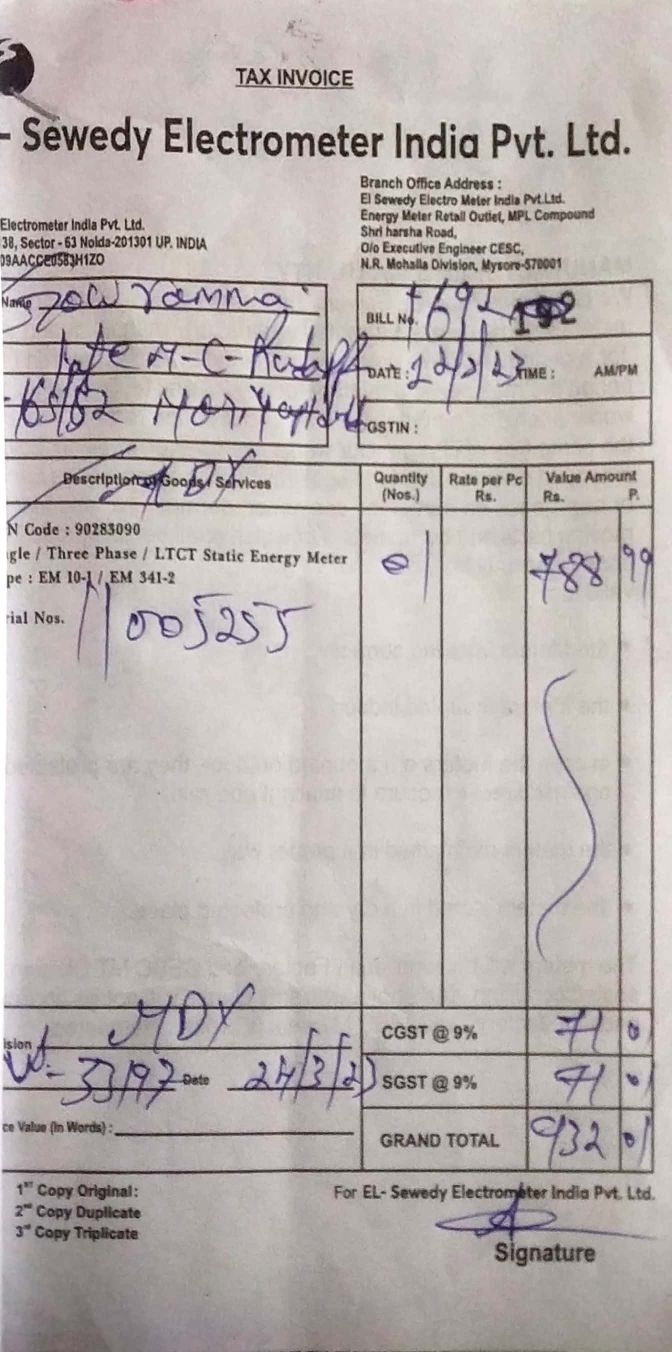 TAX INVOICE
- Sewedy Electrometer India Pvt. Ltd.
Electrometer India Pvt. Ltd.
38, Sector - 63 Noida-201301 UP. INDIA
09AACCE0583H1ZO
Branch Office Address :
El Sewedy Electro Meter India Pvt.Ltd.
Energy Meter Retail Outlet, MPL Compound
Shri harsha Road,
O/o Executive Engineer CESC,
N.R. Mohalla Division, Mysore-570001
Name
late M-C-
BILL No.
DATE : TIME : AM/PM
GSTIN :
Description of Goods / Services
Quantity (Nos.)
Rate per Pc Rs.
Value Amount Rs. P.
N Code : 90283090
gle / Three Phase / LTCT Static Energy Meter
pe : EM 10-1 / EM 341-2
01 788 99
rial Nos. 11005255
ision MDY
33197 Date 24/3/23
CGST @ 9% 71 01
SGST @ 9% 71 01
ce Value (In Words) :
GRAND TOTAL 932 01
1st Copy Original :
2nd Copy Duplicate
3rd Copy Triplicate
For EL- Sewedy Electrometer India Pvt. Ltd.
Signature